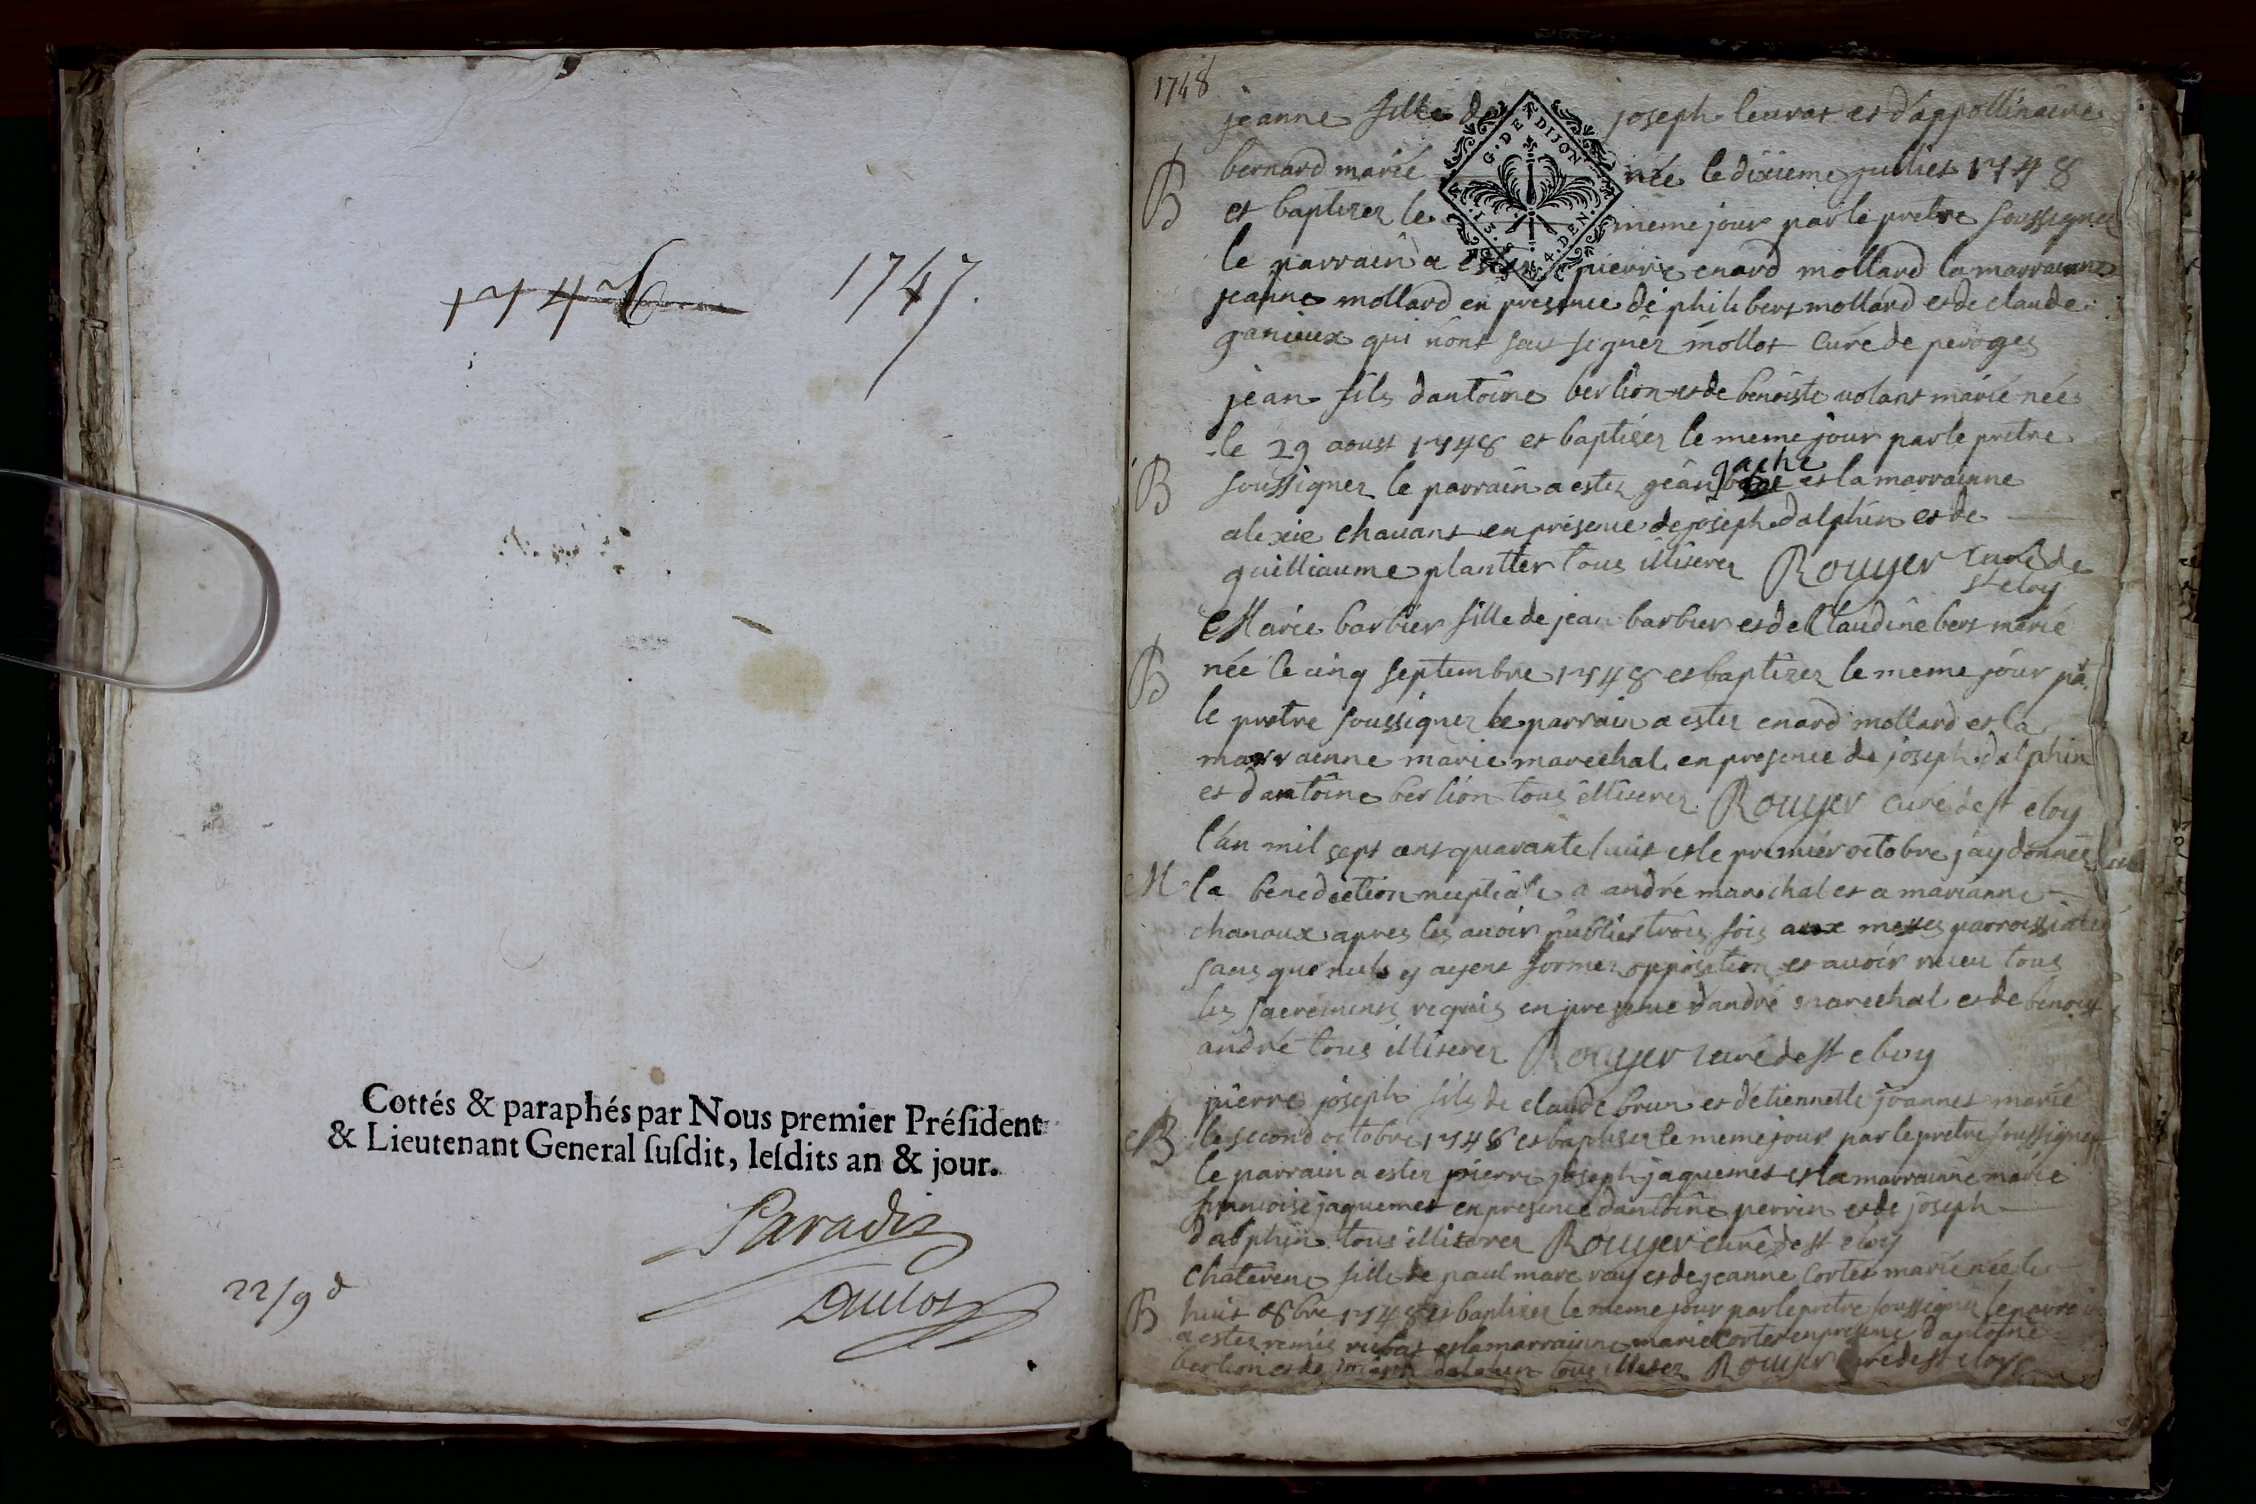 1746 1747.
Cottés & paraphés par Nous premier Préſident
& Lieutenant General ſuſdit, leſdits an & jour.
Paradis
22/9 d
1748
jeanne fille de joseph leurat et d'appollinaire
B bernard marié née le dixieme juillet 1748
et baptizez le meme jour par le pretre soussignez
G. DE DIJON
13. S 4. DEN.
le parrain a estez pierre enard mollard la marrainne
jeanne mollard en presence de philibert mollard et de claude
ganieux qui n'ont scut signéz mollot curé de peroges
jean fils dantoine berlion et de benoiste volant marié née
le 29 aoust 1748 et baptizez le meme jour par le pretre
gache
B soussignez le parrain a estez jean et la marrainne
alexie chavant en présence de joseph dalphin et de
guilliaume plantier tous illiterez Rouyer curé de
st eloy
Marie barbier fille de jean barbier et de Claudine bert marié
B née le cinq septembre 1748 et baptizez le meme jour par
le pretre soussignez le parrain a estez enard mollard et la
marrainne marie marechal en presence de joseph dalphin
et dantoine berlion tous illiterez Rouyer curé de st eloy
l'an mil sept cent quarante huit et le premier octobre jay donnéz
M la benediction nuptiale a andré marechal et a marianne
chanoux apres les avoir publiez trois fois aux messes parroissiales
sans que nuls y ayent formez opposition et avoir receu tous
les sacrements requis en presence dandré marechal et de benoist
andré tous illiterez Rouyer curé de st eloy
pierre joseph fils de claude brun et détiennette joannet marié
B le second octobre 1748 et baptizez le meme jour par le pretre soussignez
le parrain a estez pierre joseph jaquemet et la marrainne marie
francoise jaquemet en presence dantoine perrin et de joseph
dalphin tous illiterez Rouyer curé de st eloy
Chaterene fille de paul marc ray et de jeanne cortet marié née le
B huit 8bre 1748 et baptizez le meme jour par le pretre soussignez le parrain
a estez remis rubat et la marrainne marie cortet en presence dantoine
berlion et de joseph dalphin tous illiterez Rouyer curé de st eloy